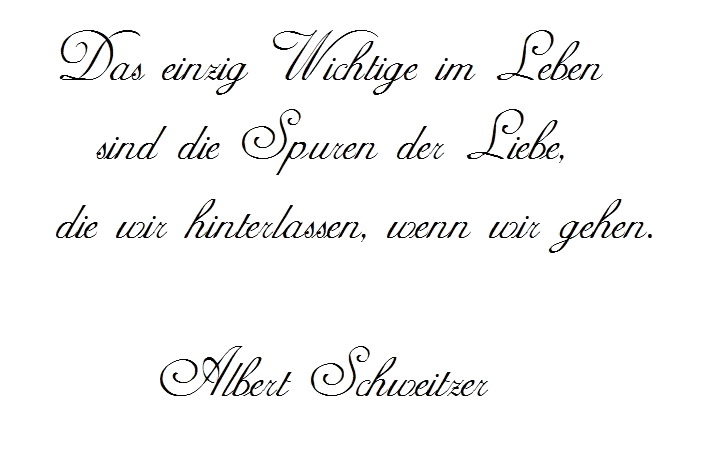 Das einzig Wichtige im Leben
sind die Spuren der Liebe,
die wir hinterlassen, wenn wir gehen.
Albert Schweitzer